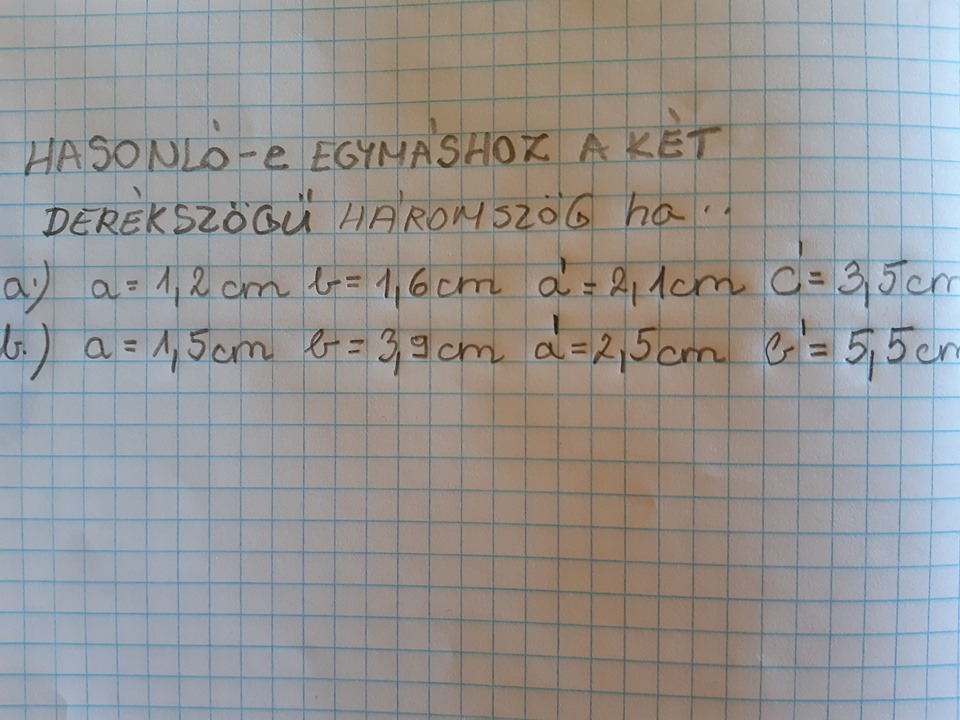 HASONLÓ-e EGYMÁSHOZ A KÉT
DERÉKSZÖGŰ HÁROMSZÖG ha..
a.) a = 1,2 cm b = 1,6 cm a' = 2,1 cm c' = 3,5 cm
b.) a = 1,5 cm b = 3,9 cm a' = 2,5 cm b' = 5,5 cm